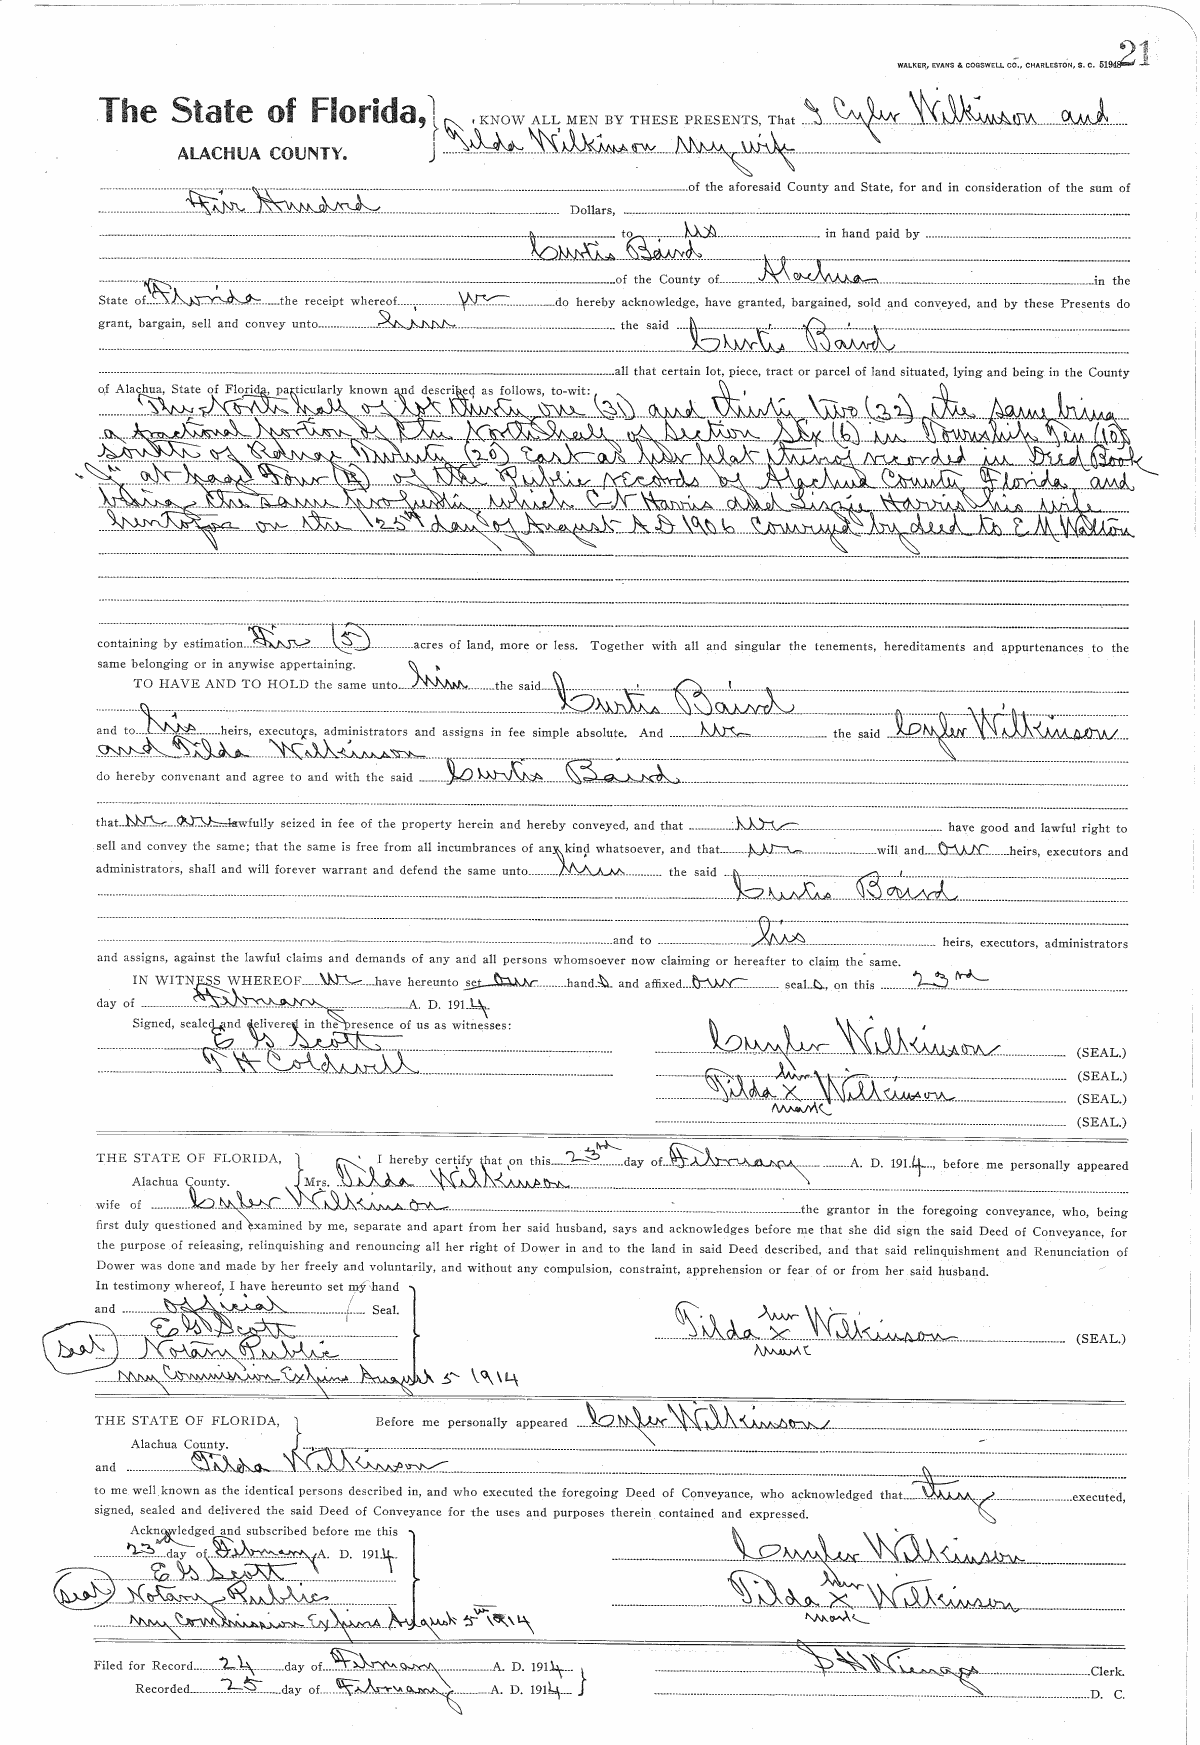 21
WALKER, EVANS & COGSWELL CO., CHARLESTON, S. C. 51948
The State of Florida, KNOW ALL MEN BY THESE PRESENTS, That I Cyler Wilkinson and
ALACHUA COUNTY. Tilda Wilkinson my wife
of the aforesaid County and State, for and in consideration of the sum of
Five Hundred Dollars,
to us in hand paid by
Curtis Baird
of the County of Alachua in the
State of Florida the receipt whereof we do hereby acknowledge, have granted, bargained, sold and conveyed, and by these Presents do
grant, bargain, sell and convey unto him the said
Curtis Baird
all that certain lot, piece, tract or parcel of land situated, lying and being in the County
of Alachua, State of Florida, particularly known and described as follows, to-wit:
The North half of lot thirty one (31) and thirty two (32) the same being
a fractional portion of the North half of Section Six (6) in Township Ten (10)
South of Range Twenty (20) East as per plat thereof recorded in Deed Book
at page Four (4) of the Public records of Alachua County Florida and
being the same which C N Harris and Lizzie Harris his wife
heretofor on the 25th day of August A D 1906 Conveyed by deed to E M Walton
containing by estimation Five (5) acres of land, more or less. Together with all and singular the tenements, hereditaments and appurtenances to the
same belonging or in anywise appertaining.
TO HAVE AND TO HOLD the same unto him the said
Curtis Baird
and to his heirs, executors, administrators and assigns in fee simple absolute. And we the said Cuyler Wilkinson
and Tilda Wilkinson
do hereby convenant and agree to and with the said Curtis Baird
that we are lawfully seized in fee of the property herein and hereby conveyed, and that we have good and lawful right to
sell and convey the same; that the same is free from all incumbrances of any kind whatsoever, and that we will and our heirs, executors and
administrators, shall and will forever warrant and defend the same unto him the said
Curtis Baird
and to his heirs, executors, administrators
and assigns, against the lawful claims and demands of any and all persons whomsoever now claiming or hereafter to claim the same.
IN WITNESS WHEREOF we have hereunto set our hand s and affixed our seal s, on this 23rd
day of February A. D. 1914.
Signed, sealed and delivered in the presence of us as witnesses:
E G Scott Cuyler Wilkinson (SEAL.)
T H Coldwell
her (SEAL.)
Tilda x Wilkinson (SEAL.)
mark
(SEAL.)
THE STATE OF FLORIDA, I hereby certify that on this 23rd day of February A. D. 1914, before me personally appeared
Alachua County. Mrs. Tilda Wilkinson
wife of Cuyler Wilkinson the grantor in the foregoing conveyance, who, being
first duly questioned and examined by me, separate and apart from her said husband, says and acknowledges before me that she did sign the said Deed of Conveyance, for
the purpose of releasing, relinquishing and renouncing all her right of Dower in and to the land in said Deed described, and that said relinquishment and Renunciation of
Dower was done and made by her freely and voluntarily, and without any compulsion, constraint, apprehension or fear of or from her said husband.
In testimony whereof, I have hereunto set my hand
and official Seal.
E G Scott
her
Tilda x Wilkinson (SEAL.)
mark
Seal Notary Public
My Commission Expires August 5 1914
THE STATE OF FLORIDA, Before me personally appeared Cuyler Wilkinson
Alachua County.
and Tilda Wilkinson
to me well known as the identical persons described in, and who executed the foregoing Deed of Conveyance, who acknowledged that they executed,
signed, sealed and delivered the said Deed of Conveyance for the uses and purposes therein contained and expressed.
Acknowledged and subscribed before me this
23rd day of February A. D. 1914. Cuyler Wilkinson
E G Scott
her
Seal Notary Public Tilda x Wilkinson
mark
My Commission Expires August 5th 1914
Filed for Record 24 day of February A. D. 1914 Clerk.
Recorded 25 day of February A. D. 1914 D. C.